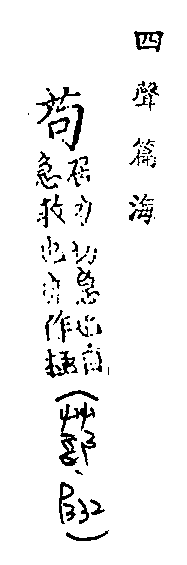 四聲篇海
茍
居力切急也自
急救也亦作極
(艸部、P332)